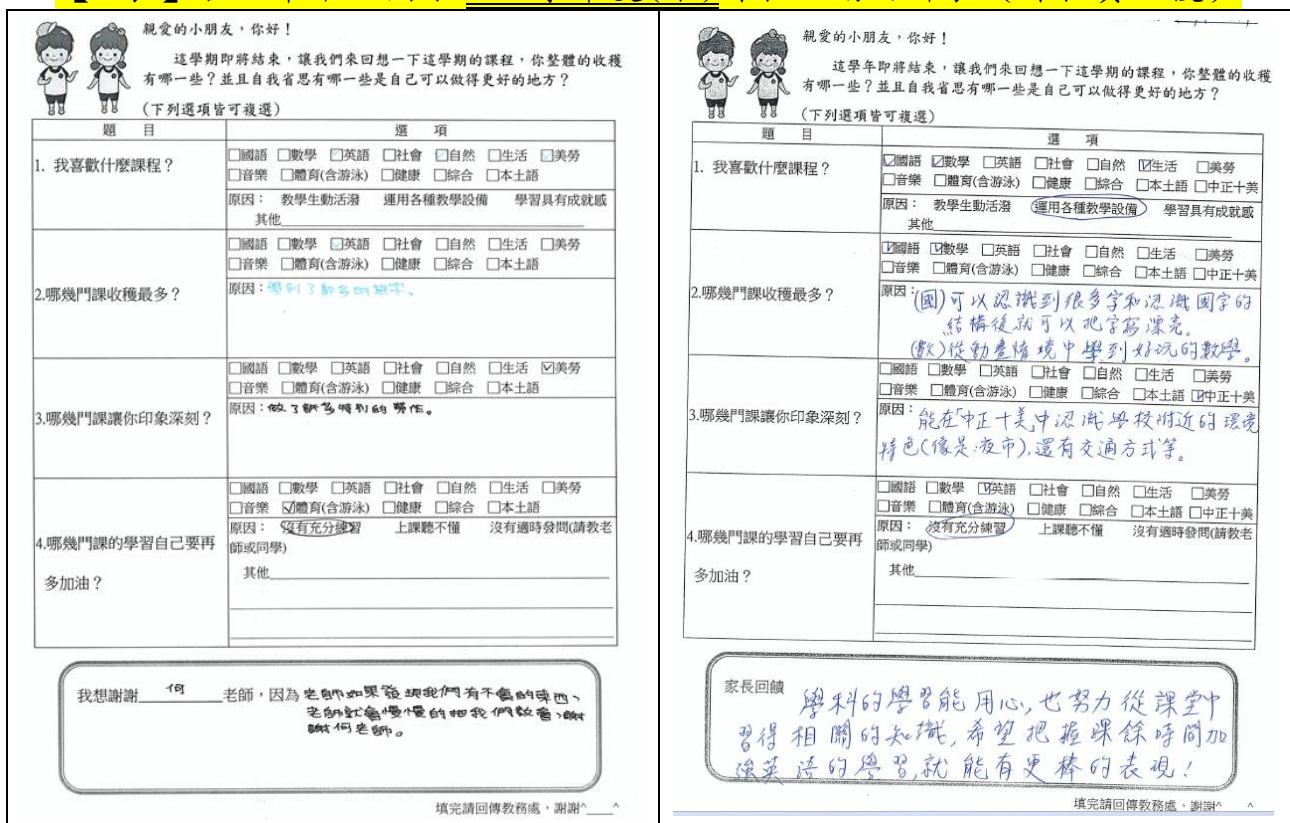 親愛的小朋友,你好!
這學期即將結束,讓我們來回想一下這學期的課程,你整體的收穫
有哪一些?並且自我省思有哪一些是自己可以做得更好的地方?
(下列選項皆可複選)
題 目 選 項
1. 我喜歡什麼課程?
□國語 □數學 ☑英語 □社會 ☑自然 □生活 ☑美勞
□音樂 □體育(含游泳) □健康 □綜合 □本土語
原因: 教學生動活潑 運用各種教學設備 學習具有成就感
其他
2.哪幾門課收穫最多?
□國語 □數學 ☑英語 □社會 □自然 □生活 □美勞
□音樂 □體育(含游泳) □健康 □綜合 □本土語
原因:學到了許多的單字。
3.哪幾門課讓你印象深刻?
□國語 □數學 □英語 □社會 □自然 □生活 ☑美勞
□音樂 □體育(含游泳) □健康 □綜合 □本土語
原因:做了許多特別的勞作。
4.哪幾門課的學習自己要再
多加油?
□國語 □數學 □英語 □社會 □自然 □生活 □美勞
□音樂 ☑體育(含游泳) □健康 □綜合 □本土語
原因: 沒有充分練習 上課聽不懂 沒有適時發問(請教老
師或同學)
其他
我想謝謝 何 老師,因為老師如果發現我們有不會的東西、
老師就會慢慢的把我們教會,謝
謝何老師。
填完請回傳教務處,謝謝^____^
親愛的小朋友,你好!
這學年即將結束,讓我們來回想一下這學期的課程,你整體的收穫
有哪一些?並且自我省思有哪一些是自己可以做得更好的地方?
(下列選項皆可複選)
題 目 選 項
1. 我喜歡什麼課程?
☑國語 ☑數學 □英語 □社會 □自然 ☑生活 □美勞
□音樂 □體育(含游泳) □健康 □綜合 □本土語 □中正十美
原因: 教學生動活潑 運用各種教學設備 學習具有成就感
其他
2.哪幾門課收穫最多?
☑國語 ☑數學 □英語 □社會 □自然 □生活 □美勞
□音樂 □體育(含游泳) □健康 □綜合 □本土語 □中正十美
原因:(國)可以認識到很多字和認識國字的
結構後就可以把字寫漂亮。
(數)從動畫情境中學到好玩的數學。
3.哪幾門課讓你印象深刻?
□國語 □數學 □英語 □社會 □自然 □生活 □美勞
□音樂 □體育(含游泳) □健康 □綜合 □本土語 ☑中正十美
原因:能在「中正十美」中認識學校附近的環境
特色(像是:夜市),還有交通方式等。
4.哪幾門課的學習自己要再
多加油?
□國語 □數學 ☑英語 □社會 □自然 □生活 □美勞
□音樂 □體育(含游泳) □健康 □綜合 □本土語 □中正十美
原因: 沒有充分練習 上課聽不懂 沒有適時發問(請教老
師或同學)
其他
家長回饋
學科的學習能用心,也努力從課堂中
習得相關的知識,希望把握課餘時間加
強英語的學習,就能有更棒的表現!
填完請回傳教務處,謝謝^ ^